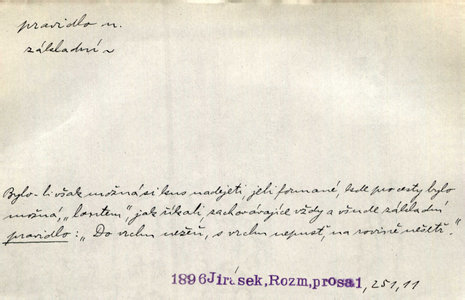 pravidlo n.
základní ~
Bylo-li však možná si kus nadejeti, jeli formané, kde pro cesty bylo
možná, „lontem", jak říkali, zachovávajíce vždy a všude základní
pravidlo: „Do vrchu nežeň, s vrchu nepusť, na rovině nešetř."
1896 Jirásek, Rozm, prosa 1, 251, 11